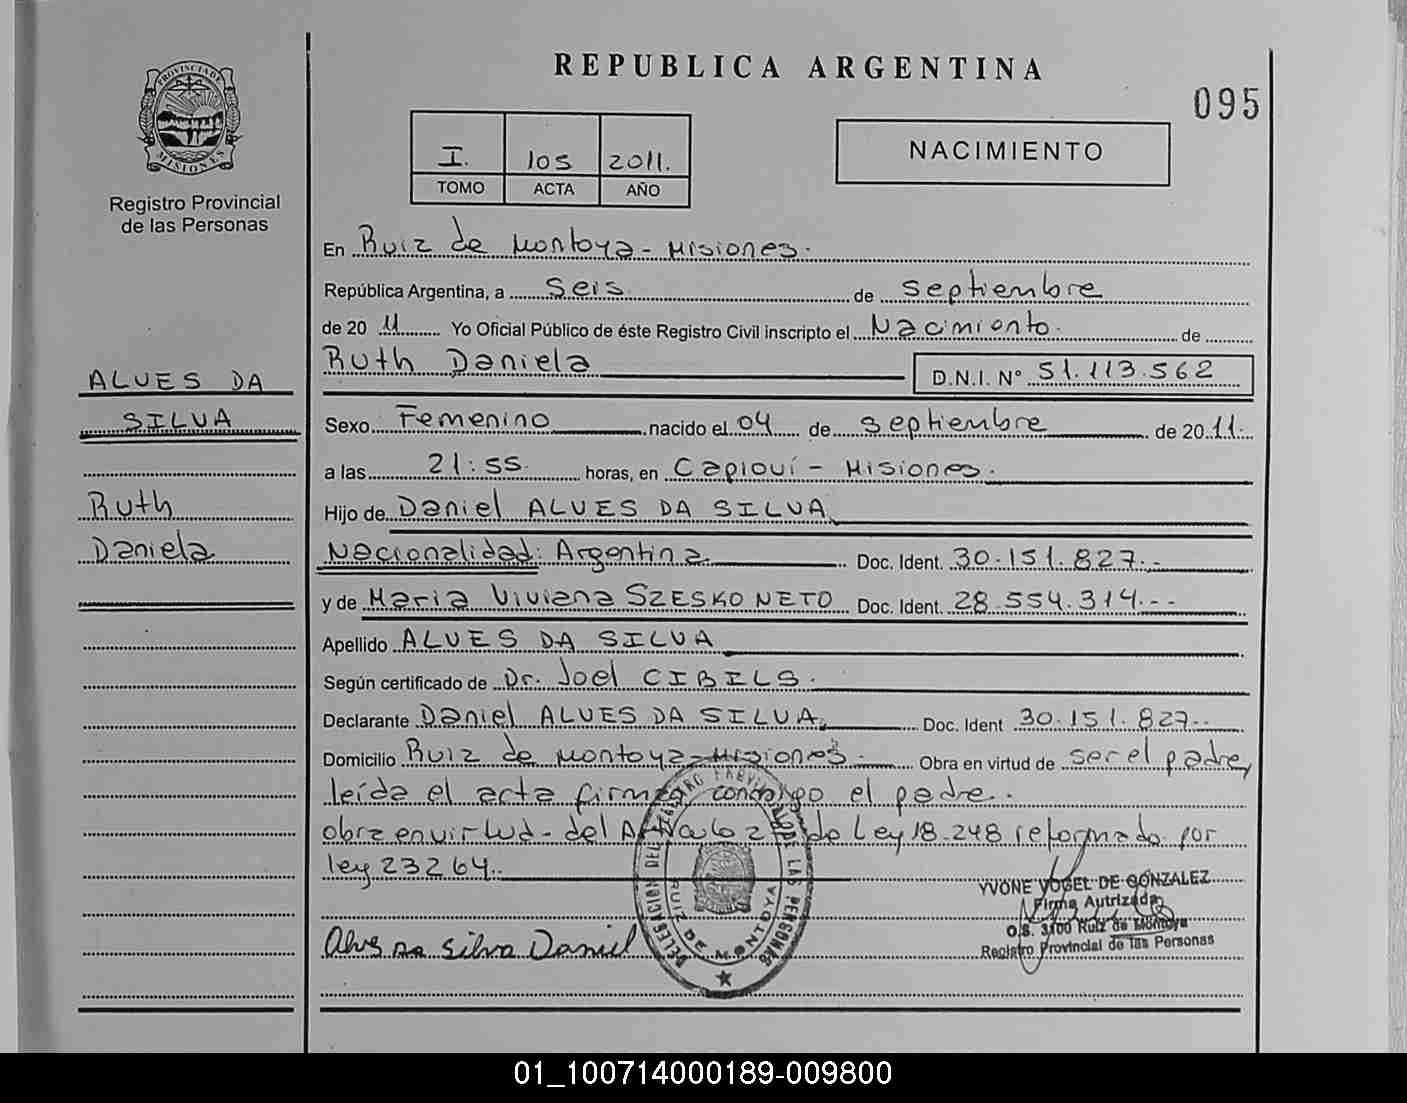 PROVINCIA DE
MISIONES
Registro Provincial
de las Personas
ALVES DA
SILVA
Ruth
Daniela
REPUBLICA ARGENTINA
095
I. 105 2011.
TOMO ACTA AÑO
NACIMIENTO
En Ruiz de Montoya - Misiones.
República Argentina, a seis de septiembre
de 20 11 Yo Oficial Público de éste Registro Civil inscripto el Nacimiento. de
Ruth Daniela D.N.I. N° 51.113.562
Sexo Femenino nacido el 04 de septiembre de 20 11.
a las 21:55. horas, en Capioví - Misiones.
Hijo de Daniel ALVES DA SILVA
Nacionalidad: Argentina Doc. Ident. 30.151.827.-
y de Maria Viviana SZESKO NETO Doc. Ident. 28.554.314.--
Apellido ALVES DA SILVA
Según certificado de Dr. Joel CIBILS.
Declarante Daniel ALVES DA SILVA. Doc. Ident 30.151.827..
Domicilio Ruiz de Montoya - Misiones. Obra en virtud de ser el padre,
leída el acta firma conmigo el padre.
obra en virtud - del Artículo 2 de Ley 18.248 reformado por
ley 23264..
DELEGACION DEL REGISTRO PROVINCIAL DE LAS PERSONAS
RUIZ DE MONTOYA
YVONE VOGEL DE GONZALEZ
Firma Autrizada
O.S. 3100 Ruiz de Montoya
Registro Provincial de las Personas
Alves Da Silva Daniel
01_100714000189-009800